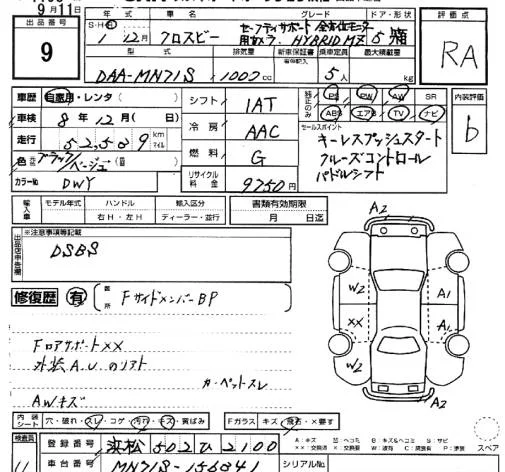 9月11日
出品番号
9
S・H・R 年
車名
グレード
ドア・形状
評価点
1 12月
クロスビー
セーフティサポート 全方位モニター
用カメラ HYBRID MZ
5 箱
RA
型式
排気量
新車保証書
有(保)記入
乗車定員
最大積載量
DAA-MN71S
1000cc
5人
kg
車歴
自家用・レンタ( )
シフト
IAT
純正のみ
PS PW AW SR
ABS エアB TV ナビ
内装評価
b
車検
8年12月( 日)
冷房
AAC
セールスポイント
キーレスプッシュスタート
クルーズコントロール
パドルシフト
走行
52,509 km
マイル
燃料
G
色
ブラック/
ベージュ
カラーNo
DWY
リサイクル
料金
9750円
輸入車
モデル年式
ハンドル
右H・左H
輸入区分
ディーラー・並行
書類有効期限
月 日迄
出品店申告欄
※注意事項等記載
DSBS
修復歴
有
箇所
FサイドメンバーBP
FロアサポートXX
外装A.Uのリスト
カーペットスレ
AWキズ
A2
W2
A1
XX
A1
W2
W2
A2
内装
シート
穴・破れ・スレ・コゲ・汚れ・キズ・黄ばみ
Fガラス
キズ・飛石・×要す
検査員
登録番号
浜松 502 ひ 2100
車台番号
MN71S-156341
シリアルNo.
スペア